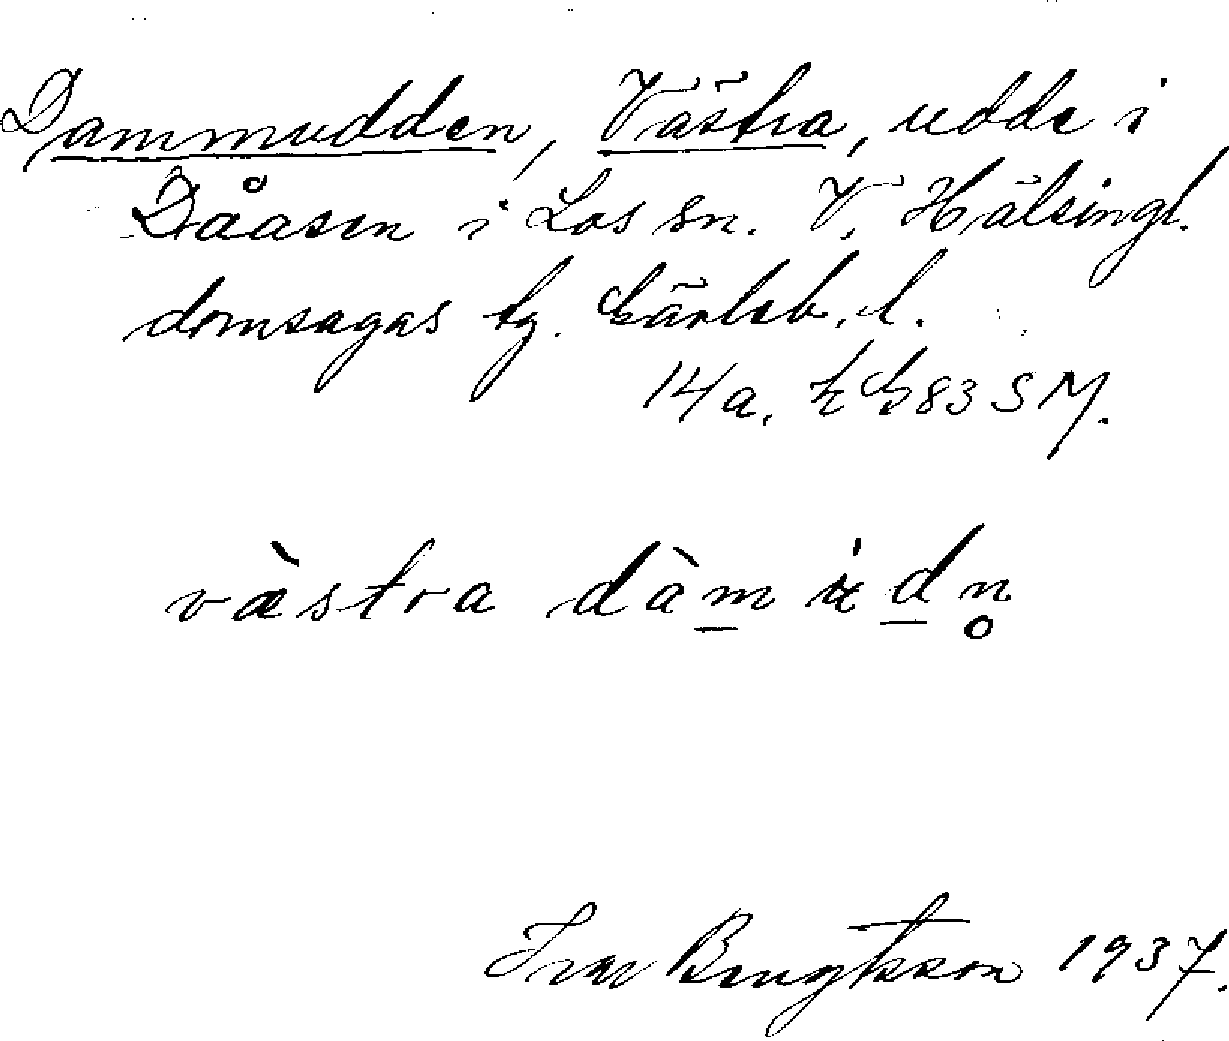 Dammudden, Västra, udde i
Dåasen i Los sn. V. Hälsingl.
domsagas tg. Gävleb. l.
14a. EG83SM.
vä̀stra dàm̲ u̇d̲n̥
Ivar Bengtsson 1937.